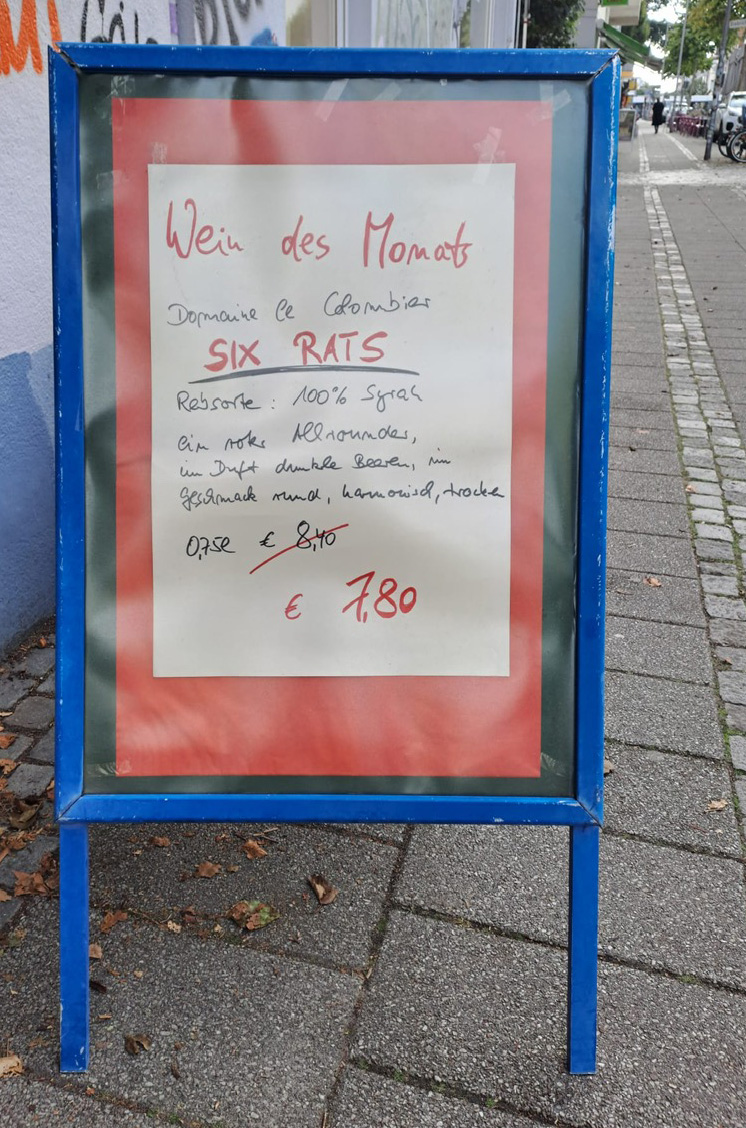 Wein des Monats
Domaine le Colombier
SIX RATS
Rebsorte: 100% Syrah
ein roter Allrounder,
im Duft dunkle Beeren, im
Geschmack rund, harmonisch, trocken
0,75l € 8,40
€ 7,80